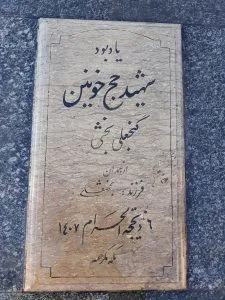 یادبود
شهید حج خونین
گنجعلی بخشی
از همدان
فرزند:
۶ ذیحجه الحرام ۱۴۰۷
مکه مکرمه